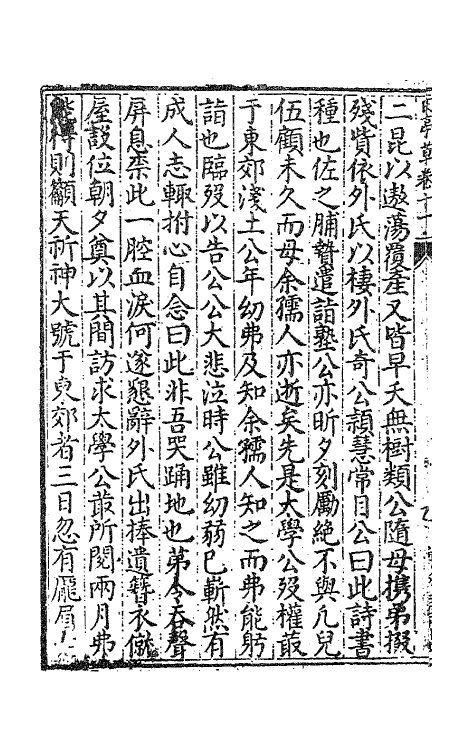 二昆以遨蕩隤產又皆早夭無樹類公隨母携弟掇
殘貲依外氏以棲外氏奇公頴慧常目公曰此詩書
種也佐之脯贄遣詣塾公亦昕夕刻勵絶不與凢兒
伍顧未久而母余孺人亦逝矣先是大學公殁權菆
于東郊淺土公年幼弗及知余孺人知之而弗能躬
詣也臨殁以告公公大悲泣時公雖幼弱已嶄然有
成人志輙拊心自念曰此非吾哭踊地也第令吞聲
屏息柰此一腔血淚何遂懇辭外氏出捧遺簪衣僦
屋設位朝夕奠以其間訪求太學公菆所閱兩月弗
能得則籲天祈神大號于東郊者三日忽有龎眉